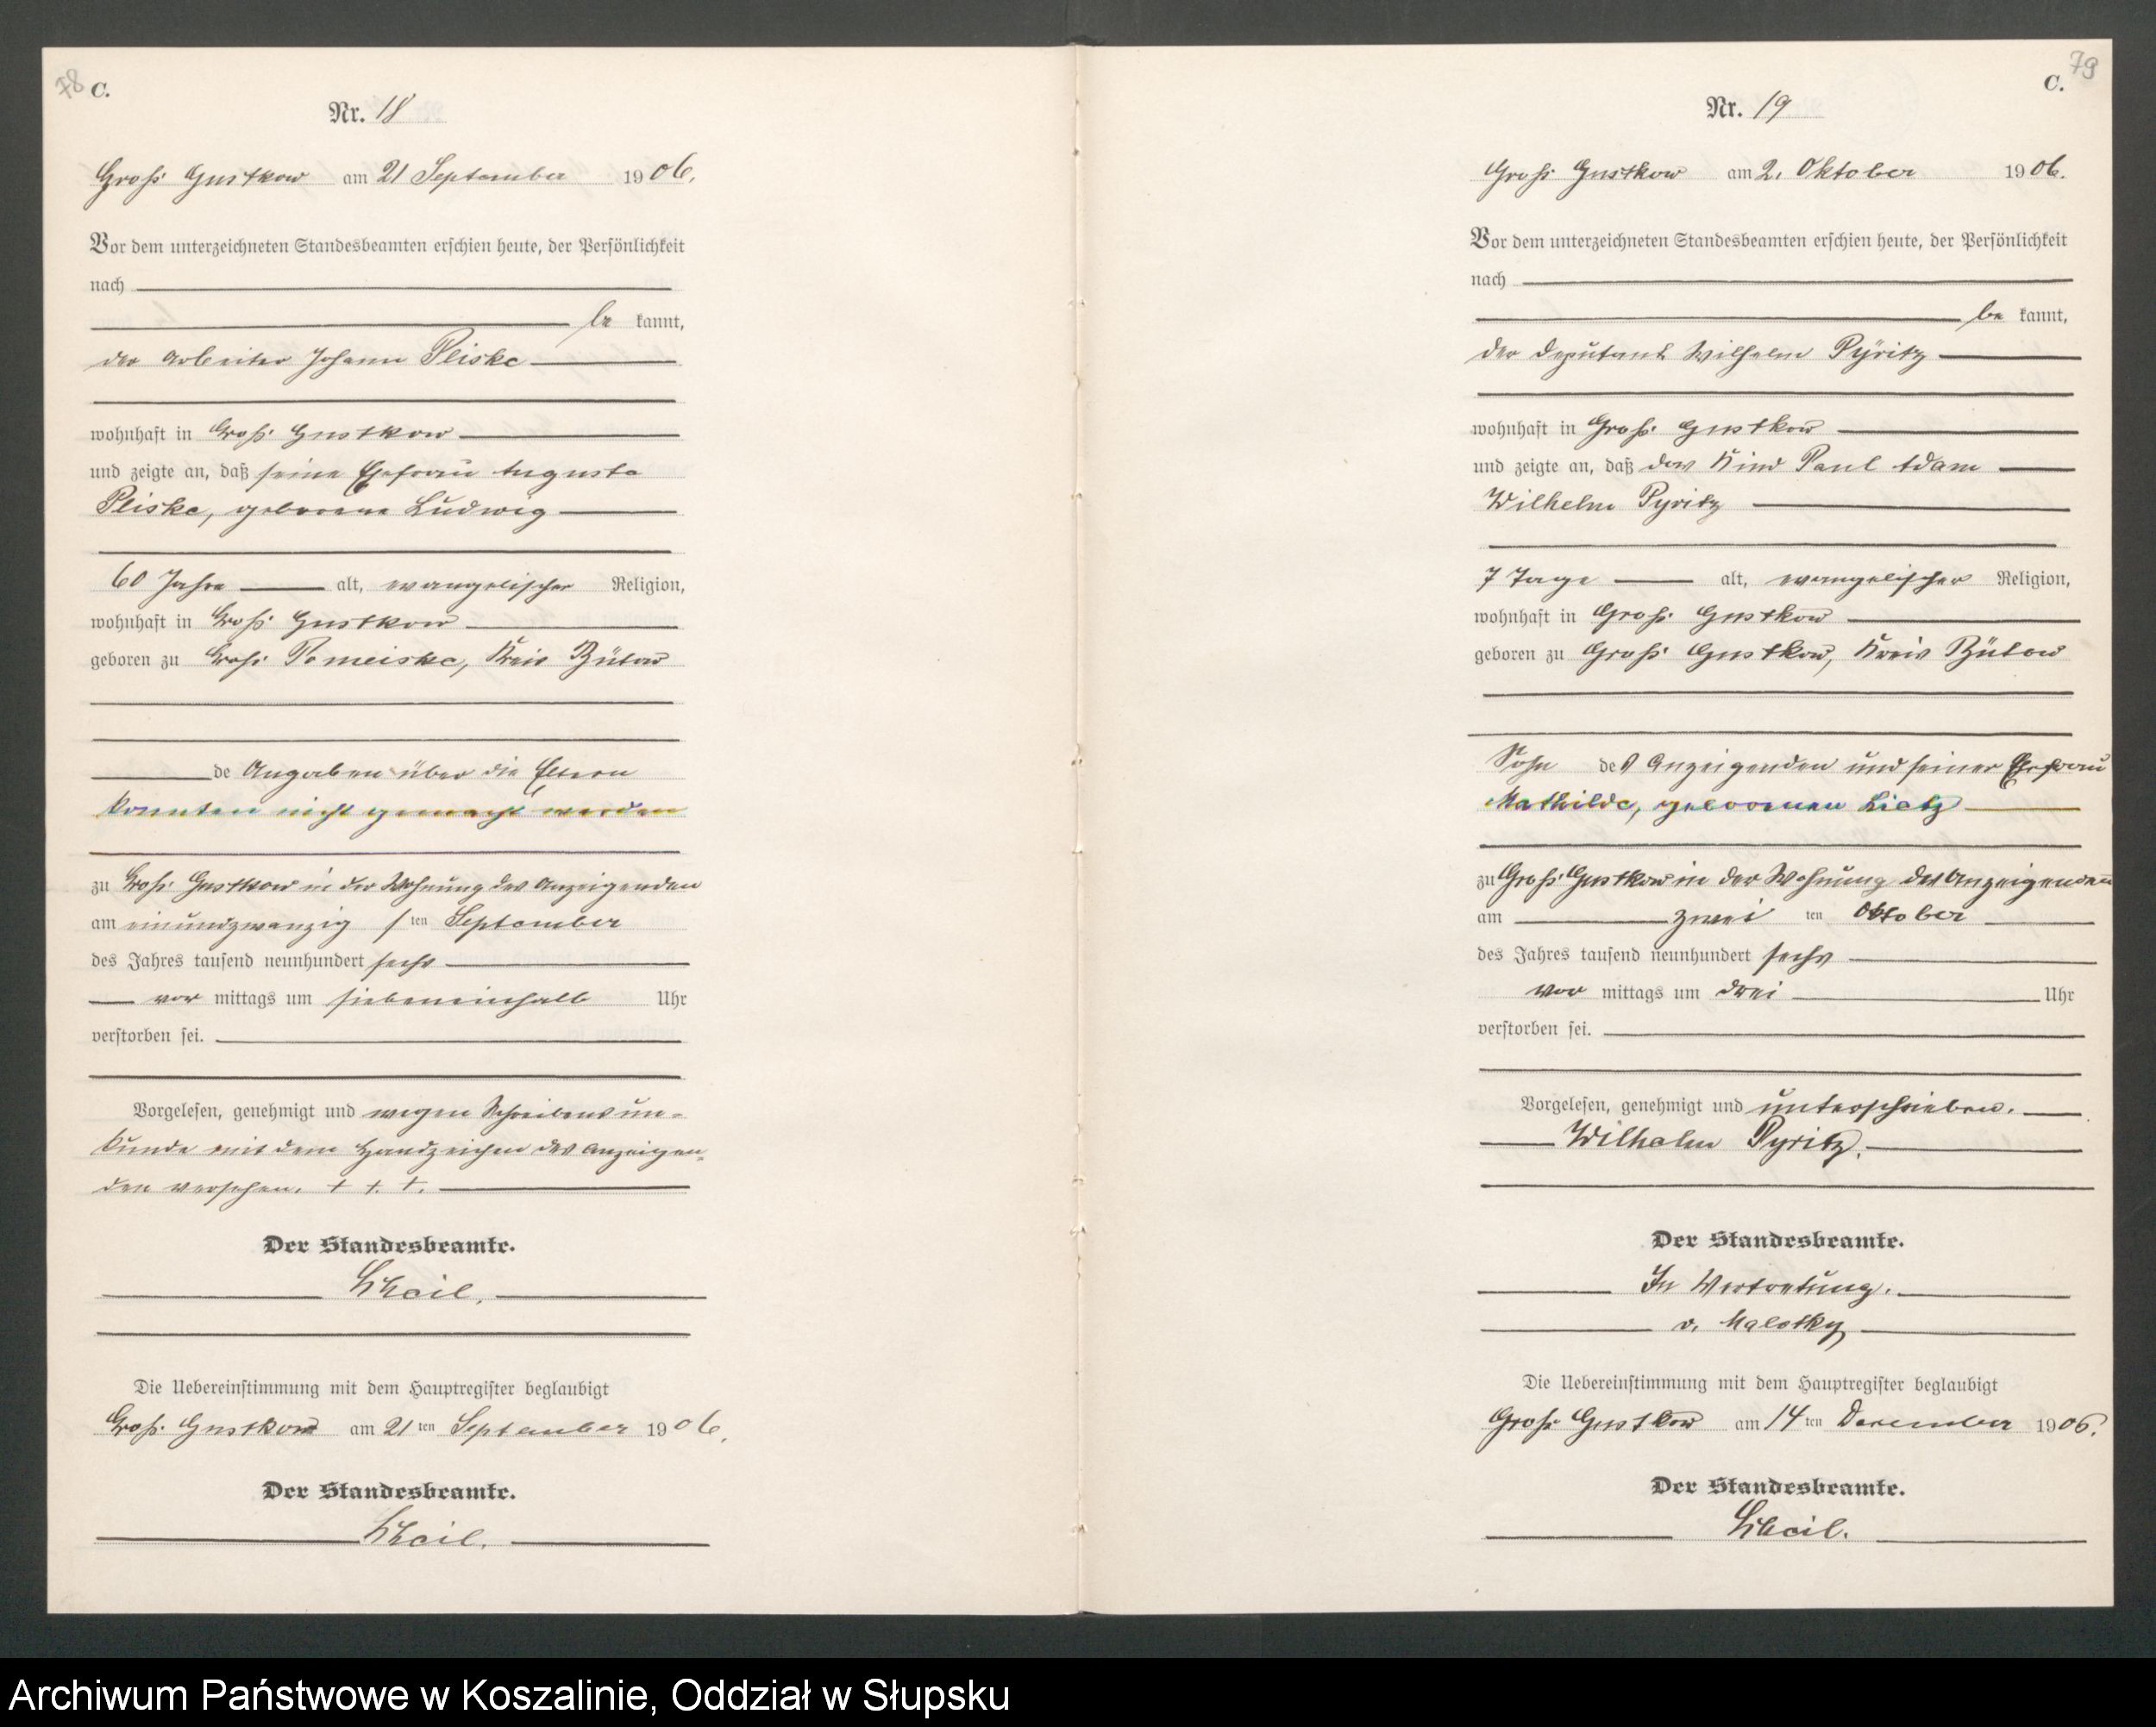 78 C.
Nr. 18
Groß Gustkow am 21 September 1906.
Vor dem unterzeichneten Standesbeamten erschien heute, der Persönlichkeit
nach
be kannt,
der Arbeiter Johann Pliske
wohnhaft in Groß Gustkow
und zeigte an, daß seine Ehefrau Auguste
Pliske, geborene Ludwig
60 Jahre alt, evangelischer Religion,
wohnhaft in Groß Gustkow
geboren zu Groß Pomeiske, Kreis Bütow
de Angaben über die Eltern
konnten nicht gemacht werden
zu Groß Gustkow in der Wohnung des Anzeigenden
am einundzwanzig ten September
des Jahres tausend neunhundert sechs
vor mittags um siebeneinhalb Uhr
verstorben sei.
Vorgelesen, genehmigt und wegen Schreibensun-
kunde mit dem Handzeichen des Anzeigen-
den versehen. + + +.
Der Standesbeamte.
Die Uebereinstimmung mit dem Hauptregister beglaubigt
Groß Gustkow am 21 ten September 1906.
Der Standesbeamte.
79
C.
Nr. 19
Groß Gustkow am 2. Oktober 1906.
Vor dem unterzeichneten Standesbeamten erschien heute, der Persönlichkeit
nach
be kannt,
der Deputant Wilhelm Pyritz
wohnhaft in Groß Gustkow
und zeigte an, daß das Kind Paul Adam
Wilhelm Pyritz
7 Tage alt, evangelischer Religion,
wohnhaft in Groß Gustkow
geboren zu Groß Gustkow, Kreis Bütow
Sohn des Anzeigenden und seiner Ehefrau
Mathilde, geborenen Lietz
zu Groß Gustkow in der Wohnung des Anzeigenden
am zwei ten Oktober
des Jahres tausend neunhundert sechs
vor mittags um drei Uhr
verstorben sei.
Vorgelesen, genehmigt und unterschrieben.
Wilhelm Pyritz.
Der Standesbeamte.
In Vertretung.
v. Malotky
Die Uebereinstimmung mit dem Hauptregister beglaubigt
Groß Gustkow am 14 ten Dezember 1906.
Der Standesbeamte.
Archiwum Państwowe w Koszalinie, Oddział w Słupsku